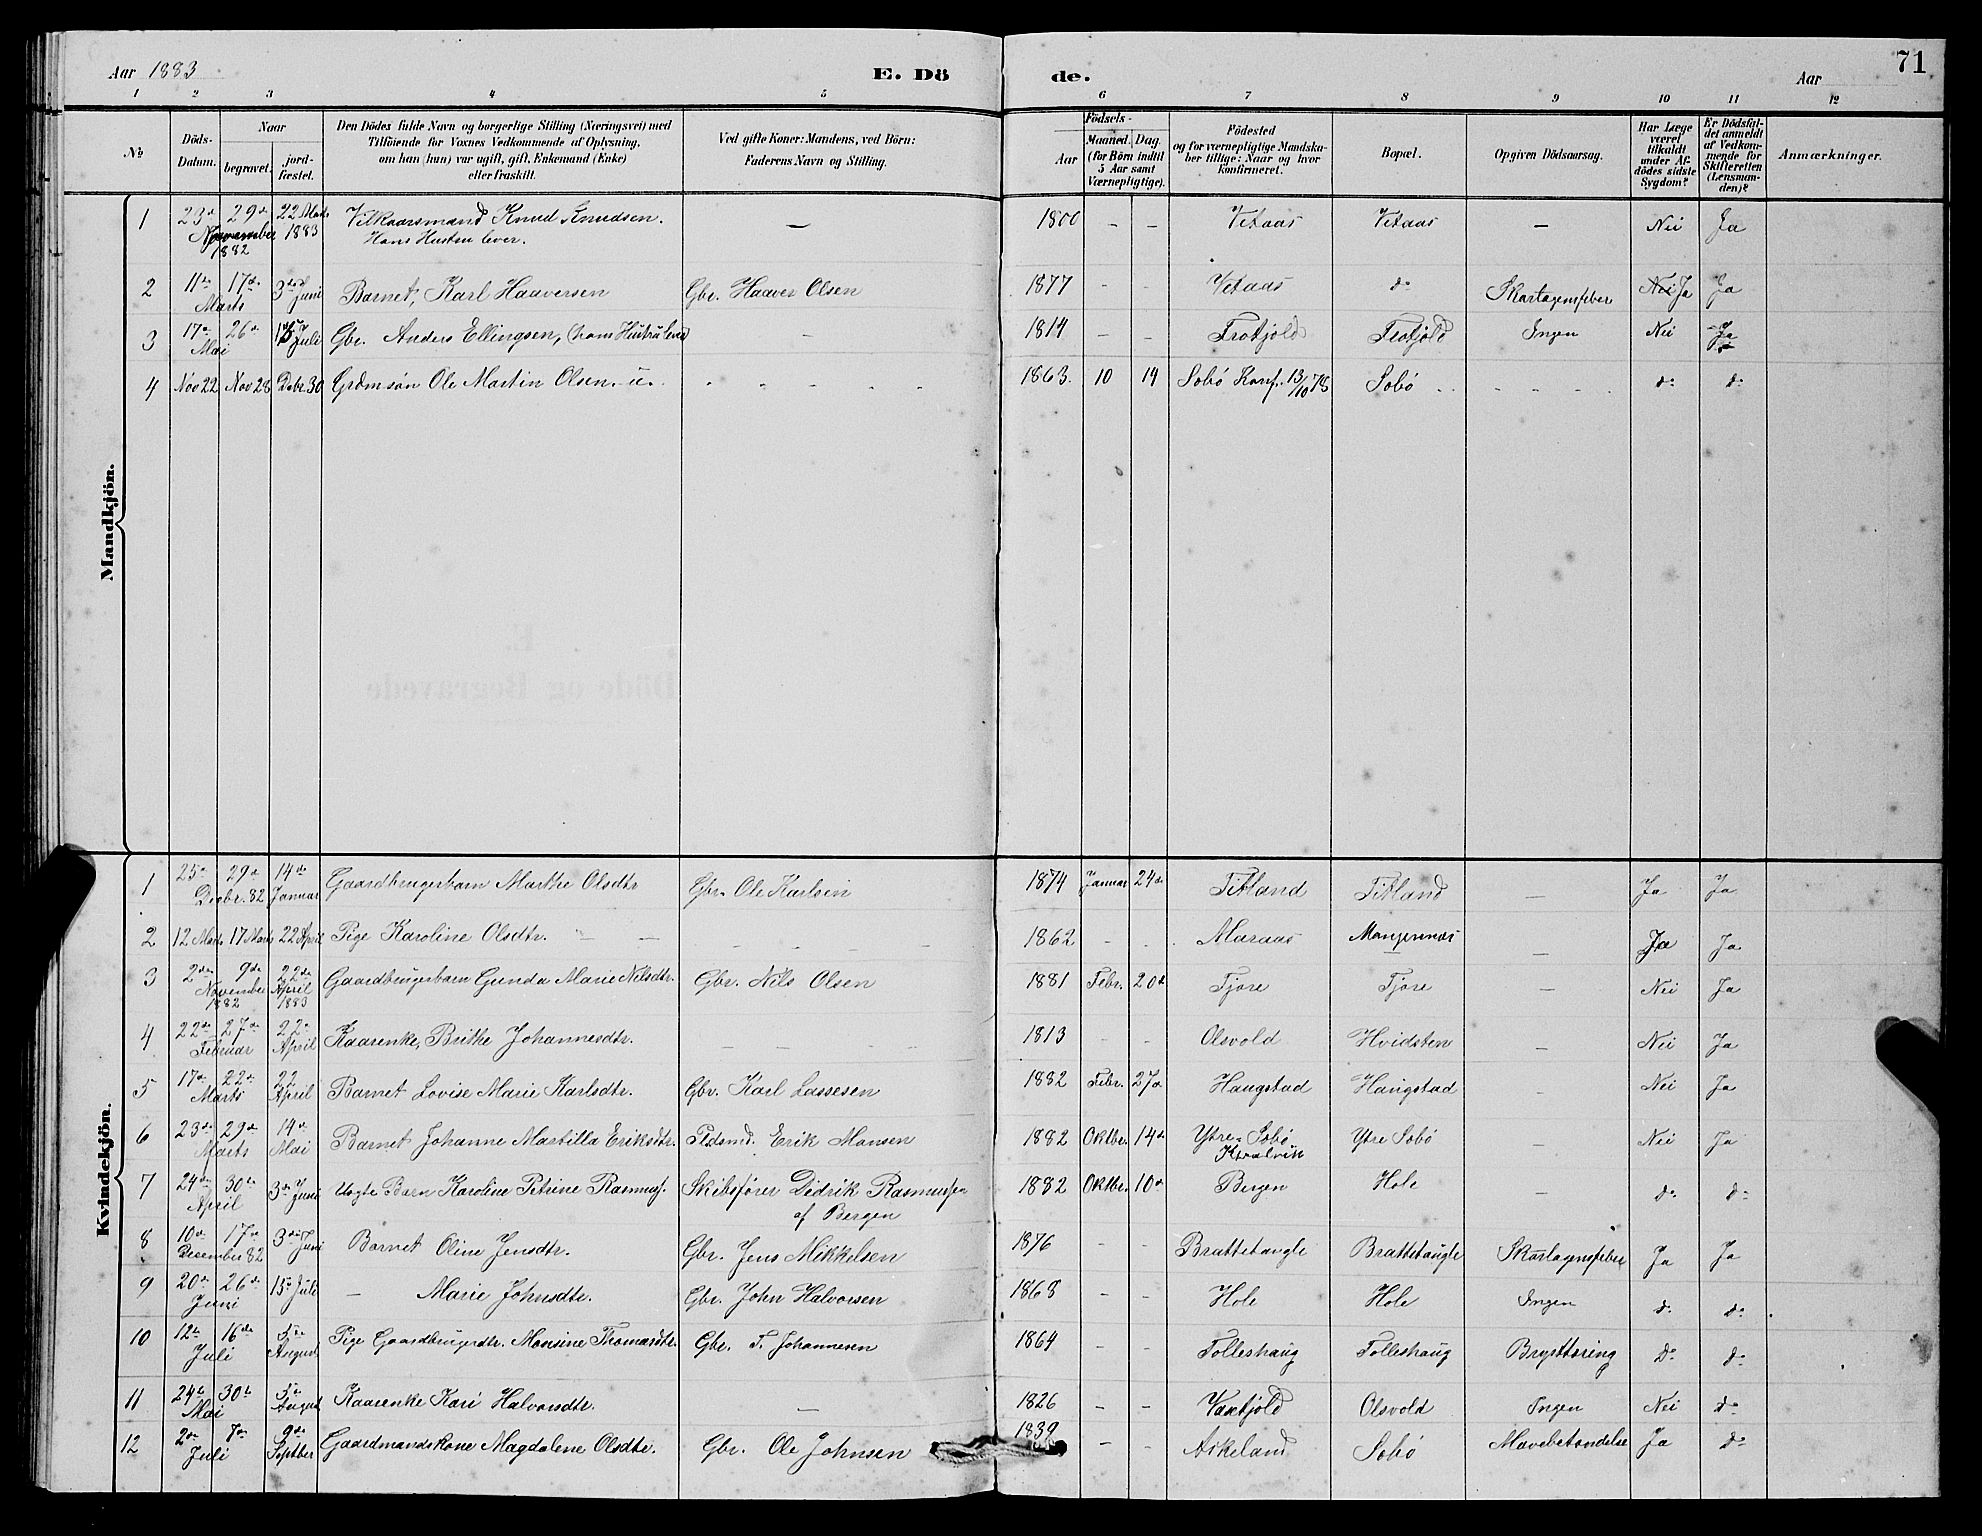 71
Aar 1883 E. Dö de. Aar
1 2 3 4 5 6 7 8 9 10 11 12
No
Döds-Datum.
Naar
begravet.
jord-fæstet.
Den Dödes fulde Navn og borgerlige Stilling (Næringsvei) med
Tilföiende for Voxnes Vedkommende af Oplysning,
om han (hun) var ugift, gift, Enkemand (Enke)
eller fraskilt.
Ved gifte Koner: Mandens, ved Börn:
Faderens Navn og Stilling.
Födsels-
Aar
Maaned. Dag.
(for Börn indtil
5 Aar samt
Værnepligtige).
Födested
og for værnepligtige Mandska-
ber tillige: Naar og hvor
konfirmeret.
Bopæl.
Opgiven Dödsaarsag.
Har Læge
været
tilkaldt
under Af-
dödes sidste
Sygdom?
Er Dödsfal-
det anmeldt
af Vedkom-
mende for
Skifteretten
(Lensman-
den)?
Anmærkninger.
Mandkjön.
1 23de 29de 22 Marts Vilkaarsmand Knud Knudsen. — 1800 - - Vetaas Vetaas — Nei Ja
November 1883 Hans Hustru lever.
1882
2 11te 17de 3die Juni Barnet, Karl Haaversen Gbr. Haaver Olsen 1877 - - Vetaas do Skarlagensfeber Nei Ja Ja
Marts
3 17de 26de 15 Juli Gbr. Anders Ellingsen, (hans Hustru lever) - 1814 - - Trotjold Trotjold Ingen Nei Ja
Mai
4 Nov 22 Nov 28 Dcbr. 30 Grdmsøn Ole Martin Olsen. u. 1863. 10 19 Sobö Konf. 13/10 78 Sobö do do
Kvindekjön.
1 25de 29de 14de Gaardbrugerbarn Marthe Olsdtr Gbr. Ole Karlsen 1874 Januar 24de Titland Titland — Ja Ja
Decbr. 82 Januar
2 12 Marts 17 Marts 22 April Pige Karoline Olsdtr. — — 1862 - - Maraas Mangernæs — Ja Ja
3 2den 9de 22de Gaardbrugerbarn Gunda Marie Nilsdtr. Gbr. Nils Olsen 1881 Febr. 20de Tjore Tjore — Nei Ja
November April
1882 1883
4 22de 27de 22de Kaarenke, Brithe Johannesdtr. — — — 1813 - - Olsvold Hvidsten — Nei Ja
Februar April
5 17de 22de 22 Barnet Lovise Marie Karlsdtr. Gbr. Karl Lassesen 1882 Febr. 27de Haugstad Haugstad — Nei Ja
Marts April
6 23de 29de 14de Barnet Johanne Martilla Eriksdtr. Pldsmd. Erik Monsen 1882 Oktbr. 14de Ytre Sobö Ytre Sobö — Nei Ja
Marts Mai
7 24de 30te 3die Juni Uægte Barn Karoline Petrine Rasmusf. Skibsfører Didrik Rasmussen 1882 Oktbr. 10de Bergen Hole do do
April af Bergen
8 10de 17de 3die Juni Barnet Oline Jensdtr. Gbr. Jens Mikkelsen 1876 - - Brattetaugle Brattetaugle Skarlagensfeber Ja Ja
December 82
9 20de 26de 15de Juli — Marie Johnsdtr. Gbr. John Halvorsen 1868 - - Hole Hole Ingen do do
Juni
10 12te 16de 5te Pige Gaardbrugerdtr. Monsine Thomasdtr. Gbr. T. Johannesen 1864 - - Tolleshaug Tolleshaug Brysttæring do do
Juli August
11 24de 30te 5te Kaarenke Kari Halvorsdtr. — 1826 - - Vaxtjold Olsvold Ingen Nei do
Mai August
12 2den 7de 9de Gaardmandskone Magdalene Olsdtr. Gbr. Ole Johnsen 1839 - - Askeland Sobö Mavebetændelse Ja do
Juli Septber